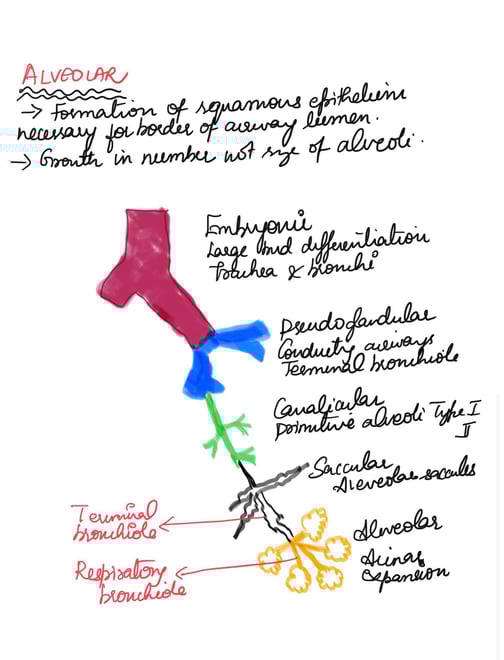 ALVEOLAR
→ Formation of squamous epithelium
necessary for border of airway lumen.
→ Growth in number not size of alveoli.
Embryonic
Large bud differentiation
Trachea & bronchi
Pseudoglandular
Conducty airways
Terminal bronchiole
Canalicular
Primitive alveoli Type I
II
Saccular
Aleveolar saccules
Terminal
bronchiole
Alveolar
Acinar
expansion
Respiratory
bronchiole